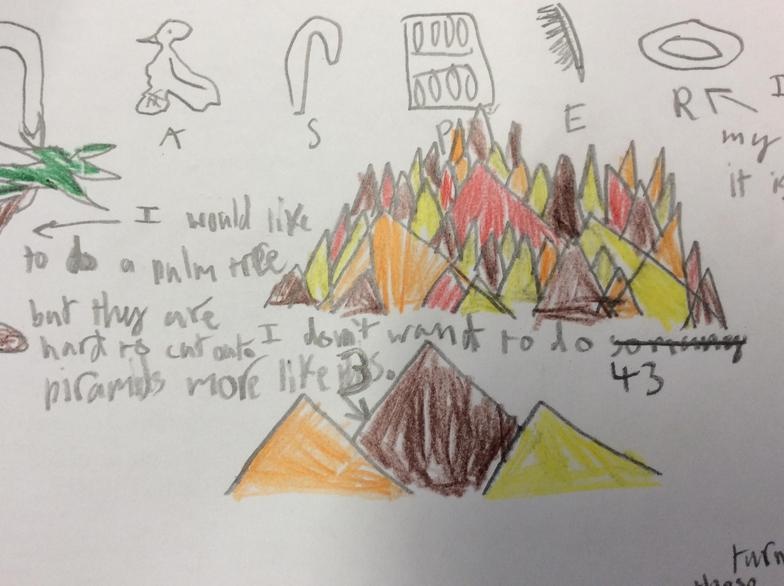 A S P E R
I
my
it i
I would like
to do a palm tree
but they are
hard to cut out
I don't want to do so many
43
piramids more like 3.
turn